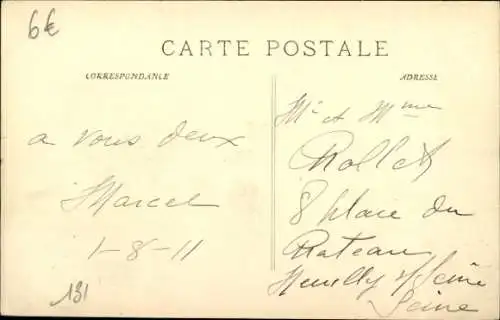 6€
CARTE POSTALE
CORRESPONDANCE
ADRESSE
a vous deux
Marcel
1-8-11
131
Mr et Mme
Rollet
8 place du
Rateau
Neuilly s/ Seine
Seine